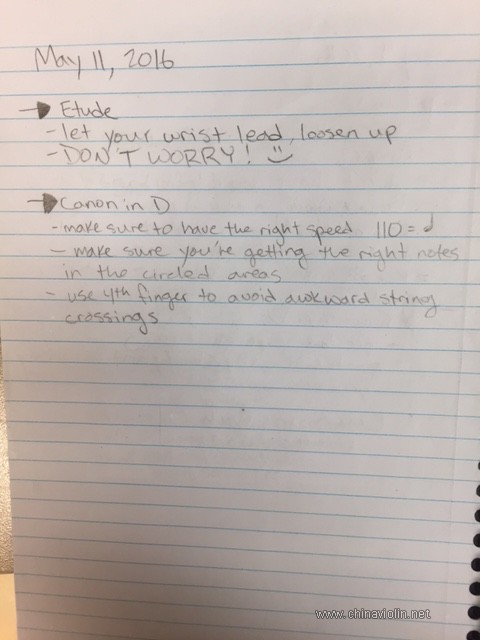 May 11, 2016
→ Etude
- let your wrist lead, loosen up
- DON'T WORRY! :)
→ Canon in D
- make sure to have the right speed 110 = ♩
- make sure you're getting the right notes
in the circled areas
- use 4th finger to avoid awkward string
crossings
www.chinaviolin.net